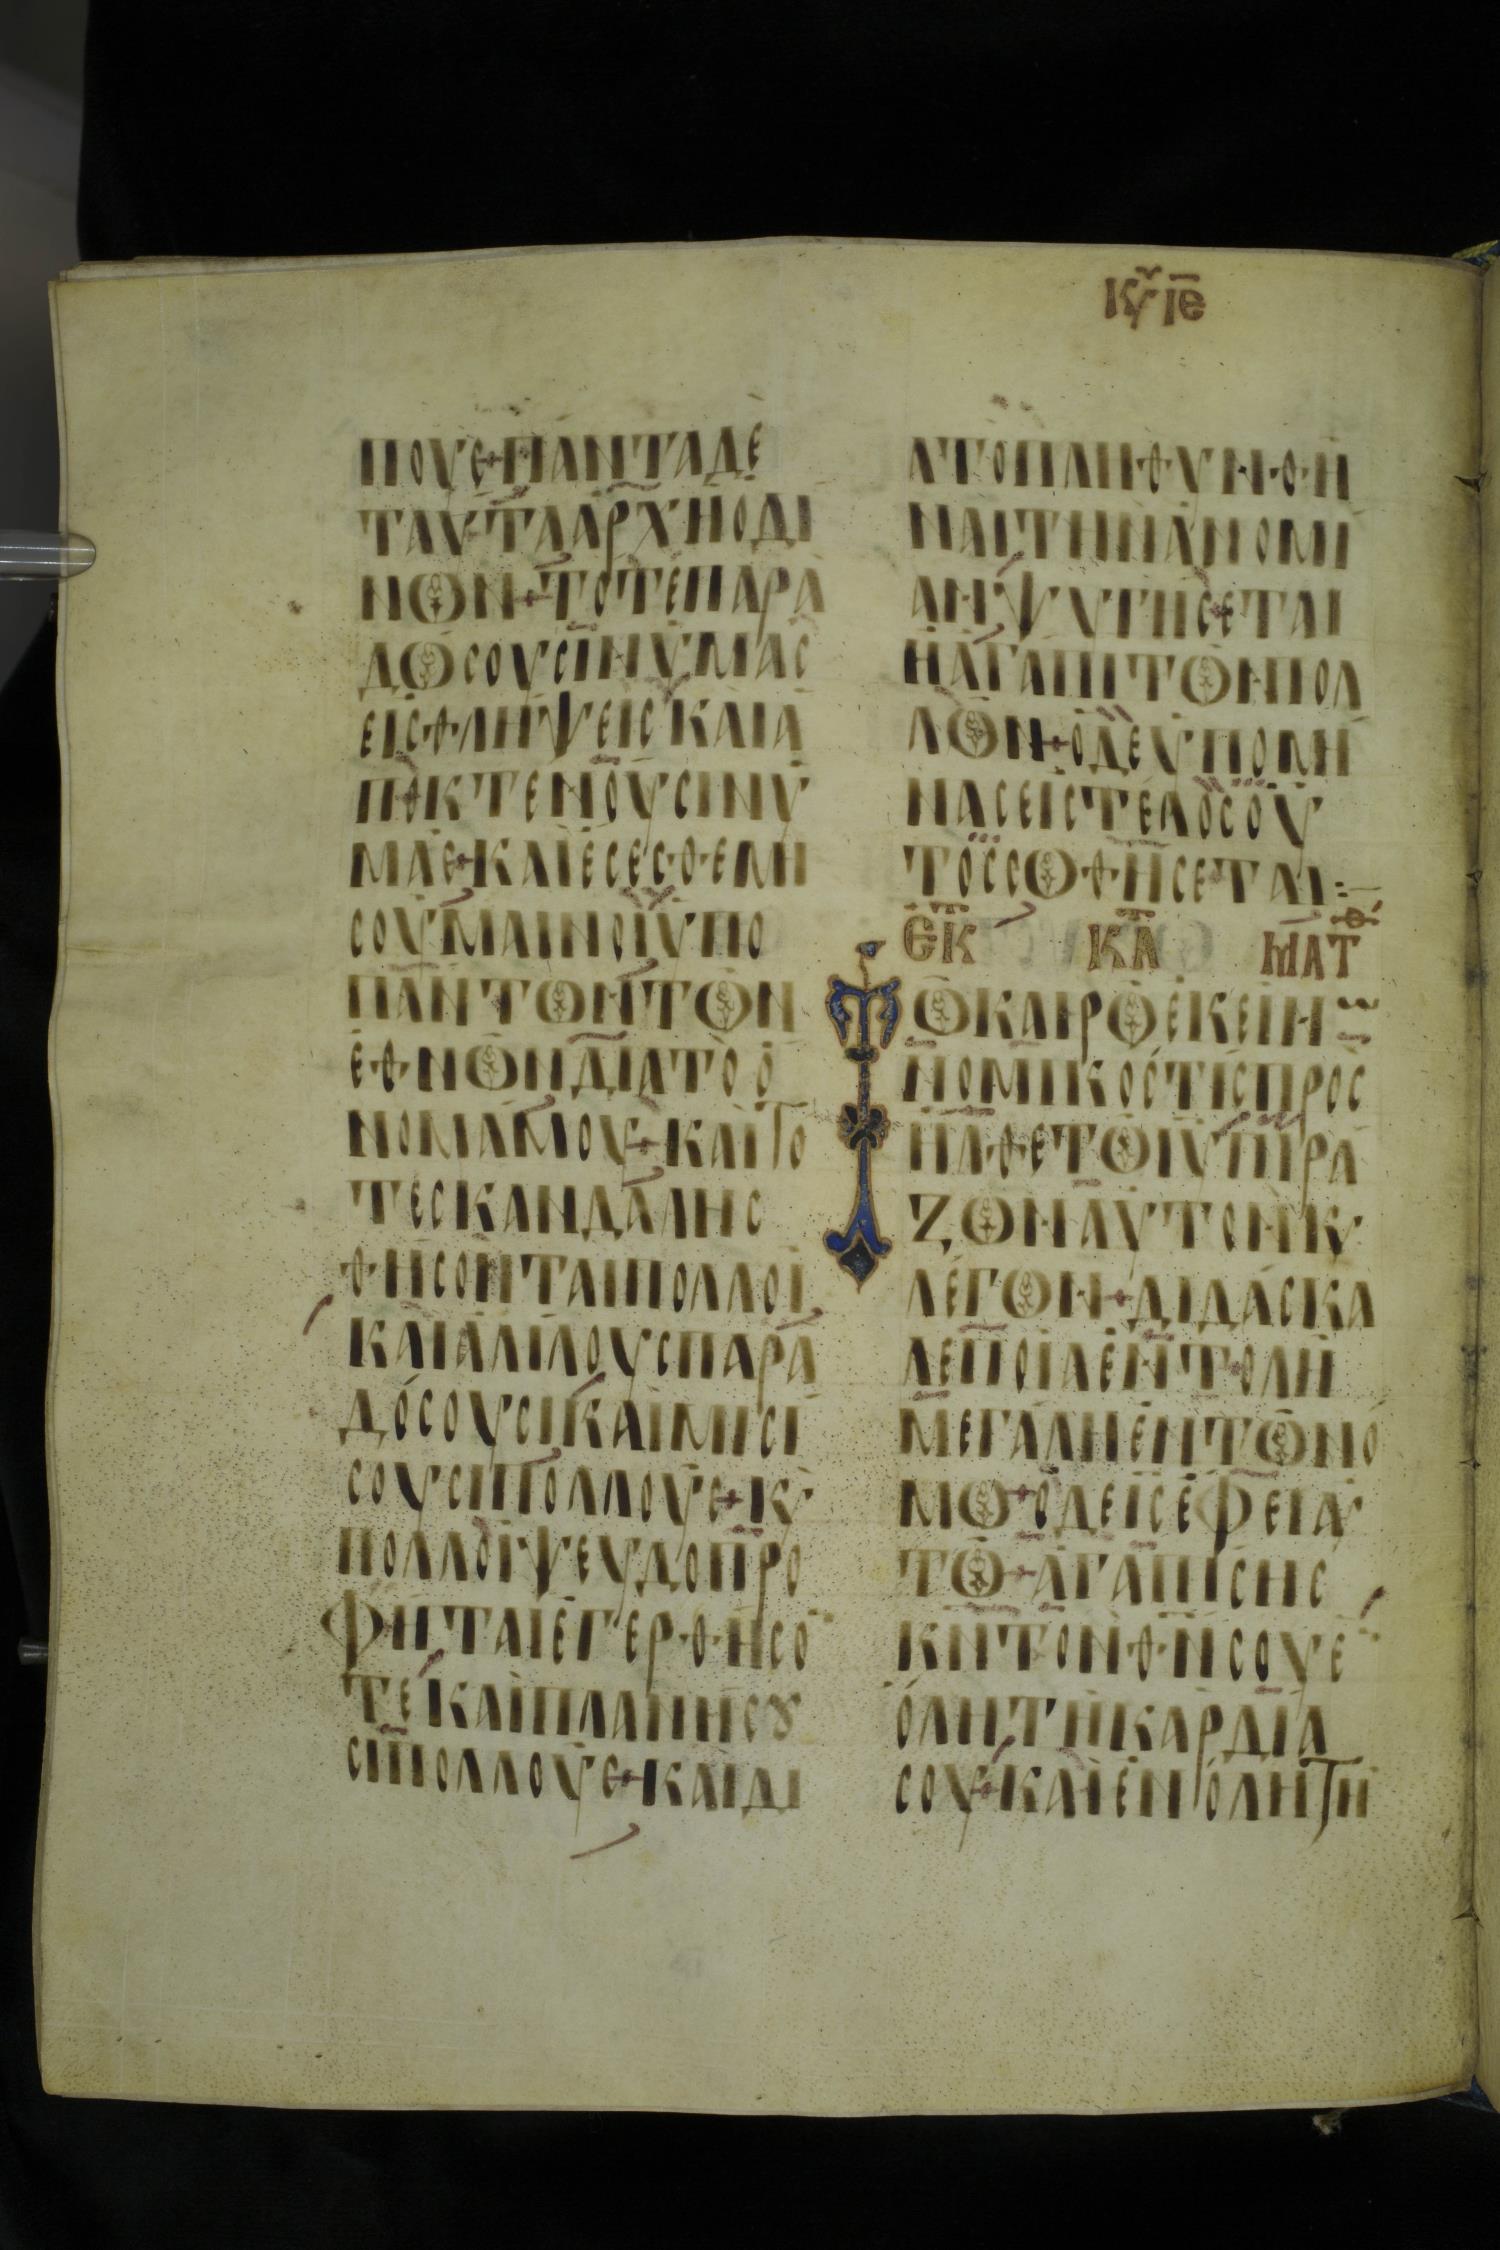 Κυ ΙΕ
ΠΟΥΣ+ΠΑΝΤΑΔΕ
ΤΑΥΤΑΑΡΧΗΟΔΙ
ΝΩΝ+ΤΟΤΕΠΑΡΑ
ΔΩΣΟΥΣΙΝΥΜΑΣ
ΕΙΣΘΛΗΨΕΙΣΚΑΙΑ
ΠΟΚΤΕΝΟΥΣΙΝΥ
ΜΑΣ+ΚΑΙΕΣΕΣΘΕΜΗ
ΣΟΥΜΑΙΝΟΙΥΠΟ
ΠΑΝΤΩΝΤΩΝ
ΕΘΝΩΝΔΙΑΤΟΟ
ΝΟΜΑΜΟΥ+ΚΑΙΤΟ
ΤΕΣΚΑΝΔΑΛΗΣ
ΘΗΣΟΝΤΑΙΠΟΛΛΟΙ
ΚΑΙΑΛΙΛΟΥΣΠΑΡΑ
ΔΟΣΟΥΣΙΚΑΙΜΙΣΙ
ΣΟΥΣΙΠΟΛΛΟΥΣ+Κ
ΠΟΛΛΟΙΨΕΥΔΟΠΡΟ
ΦΗΤΑΙΕΓΕΡΘΗΣΟ
ΤΕΚΑΙΠΛΑΝΗΣȢ
ΣΙΠΟΛΛΟΥΣ+ΚΑΙΔΙ
ΑΤΟΠΛΗΘΥΝΘΗ
ΝΑΙΤΗΝΑΝΟΜΙ
ΑΝΨΥΓΗΣΕΤΑΙ
ΗΑΓΑΠΙΤΩΝΠΟΛ
ΛΩΝ+ΟΔΕΥΠΟΜΗ
ΝΑΣΕΙΣΤΕΛΟΣΟΥ
ΤΟΣΣΩΘΗΣΕΤΑΙ:—
ΕΚ ΚΑ ΜΑΤΘ
ΤΩΚΑΙΡΩΕΚΕΙΝ
ΝΟΜΙΚΟΣΤΙΣΠΡΟΣ
ΗΛΘΕΤΩΙΥΠΙΡΑ
ΖΩΝΑΥΤΟΝΚ
ΛΕΓΩΝ+ΔΙΔΑΣΚΑ
ΛΕΠΟΙΑΕΝΤΟΛΗ
ΜΕΓΑΛΗΕΝΤΩΝΟ
ΜΩ+ΟΔΕΙΣΕΦΕΙΑΥ
ΤΩ+ΑΓΑΠΗΣΗΣ
ΚΝΤΟΝΘΝΣΟΥΕ
ΟΛΗΤΗΚΑΡΔΙΑ
ΣΟΥ+ΚΑΙΕΝΟΛΗΤΗ